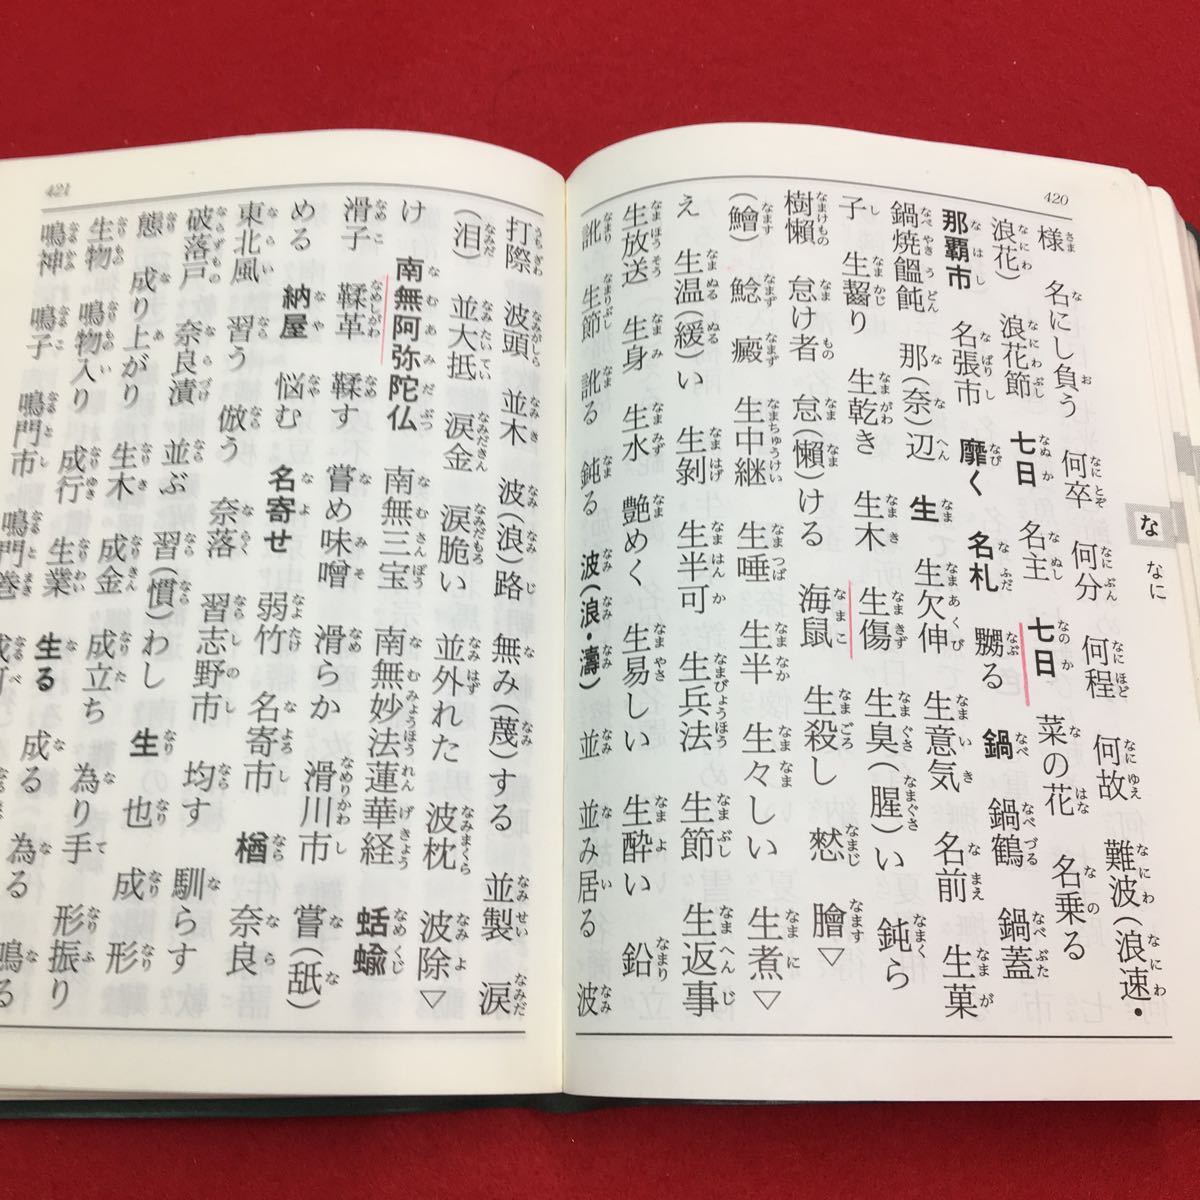 420
な なに
様 名にし負う 何卒 何分 何程 何故 難波(浪速・
浪花) 浪花節 七日 名主 七日 菜の花 名乗る
那覇市 名張市 靡く 名札 嬲る 鍋 鍋鶴 鍋蓋
鍋焼饂飩 那(奈)辺 生 生欠伸 生意気 名前 生菓
子 生齧り 生乾き 生木 生傷 生臭(腥)い 鈍ら
樹懶 怠け者 怠(懶)ける 海鼠 生殺し 憖 膾▽
(鱠) 鯰 癜 生中継 生唾 生半 生々しい 生煮▽
え 生温(緩)い 生剝 生半可 生兵法 生節 生返事
生放送 生身 生水 艶めく 生易しい 生酔い 鉛
訛 生節 訛る 鈍る 波(浪・濤) 並 並み居る 波
421
打際 波頭 並木 波(浪)路 無み(蔑)する 並製 涙
(泪) 並大抵 涙金 涙脆い 並外れた 波枕 波除▽
け 南無阿弥陀仏 南無三宝 南無妙法蓮華経 蛞蝓
滑子 鞣革 鞣す 嘗め味噌 滑らか 滑川市 嘗(舐)
める 納屋 悩む 名寄せ 弱竹 名寄市 楢 奈良
東北風 習う 倣う 奈落 習志野市 均す 馴らす
破落戸 奈良漬 並ぶ 習(慣)わし 生 也 成 形
態 成り上がり 生木 成金 成立ち 為り手 形振り
生物 鳴物入り 成行 生業 生る 成る 為る 鳴る
鳴神 鳴子 鳴門市 鳴門巻